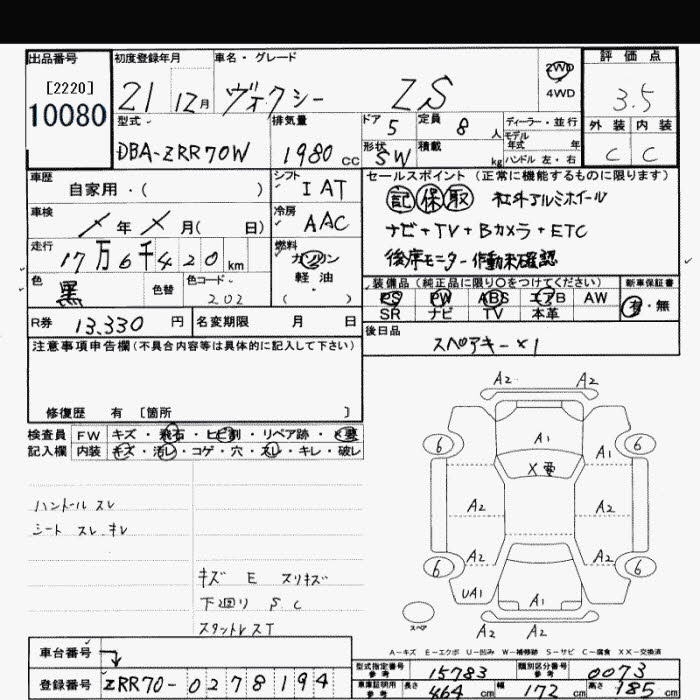 出品番号 初度登録年月 車名・グレード 評価点
[2220] 21 12月 ヴォクシー ZS 2WD 4WD 3.5
10080
型式 排気量 ドア 5 定員 8 人 ディーラー・並行 外装 内装
DBA-ZRR70W 1980 cc 形状 SW 積載 kg モデル年式 年 C C
ハンドル 左・右
車歴 自家用・( ) シフト IAT セールスポイント (正常に機能するものに限ります)
記 保 取 社外アルミホイール
車検 × 年 × 月( 日) 冷房 AAC ナビ+TV+Bカメラ+ETC
走行 17万6千420 km 燃料 ガソリン 軽・油 ( ) 後席モニター作動未確認
色 黒 色替 色コード 202 装備品 (純正品に限り○をつけてください) 新車保証書
PS PW ABS エアB AW 有・無
SR ナビ TV 本革
R券 13,330 円 名変期限 月 日 後日品
注意事項申告欄(不具合内容等は具体的に記入して下さい) スペアキー×1
修復歴 有 [箇所 ]
検査員 FW キズ・飛石・ヒビ割・リペア跡・×要
記入欄 内装 キズ・汚レ・コゲ・穴・スレ・キレ・破レ
ハンドル スレ
シート スレ キレ
キズ E スリキズ
下廻リ S C
スタットレスT
A2 A2
6 A1 A1 6
X要
A2 A2
A2 A2
6 6
UA1 A1
A2 A2
スペア
A-キズ E-エクボ U-凹み W-補修跡 S-サビ C-腐食 XX-交換済
車台番号 型式指定番号 参考 15783 類別区分番号 参考 0073
登録番号 ZRR70-0278194 車庫証明用 参考 長さ 464 cm 幅 172 cm 高さ 185 cm